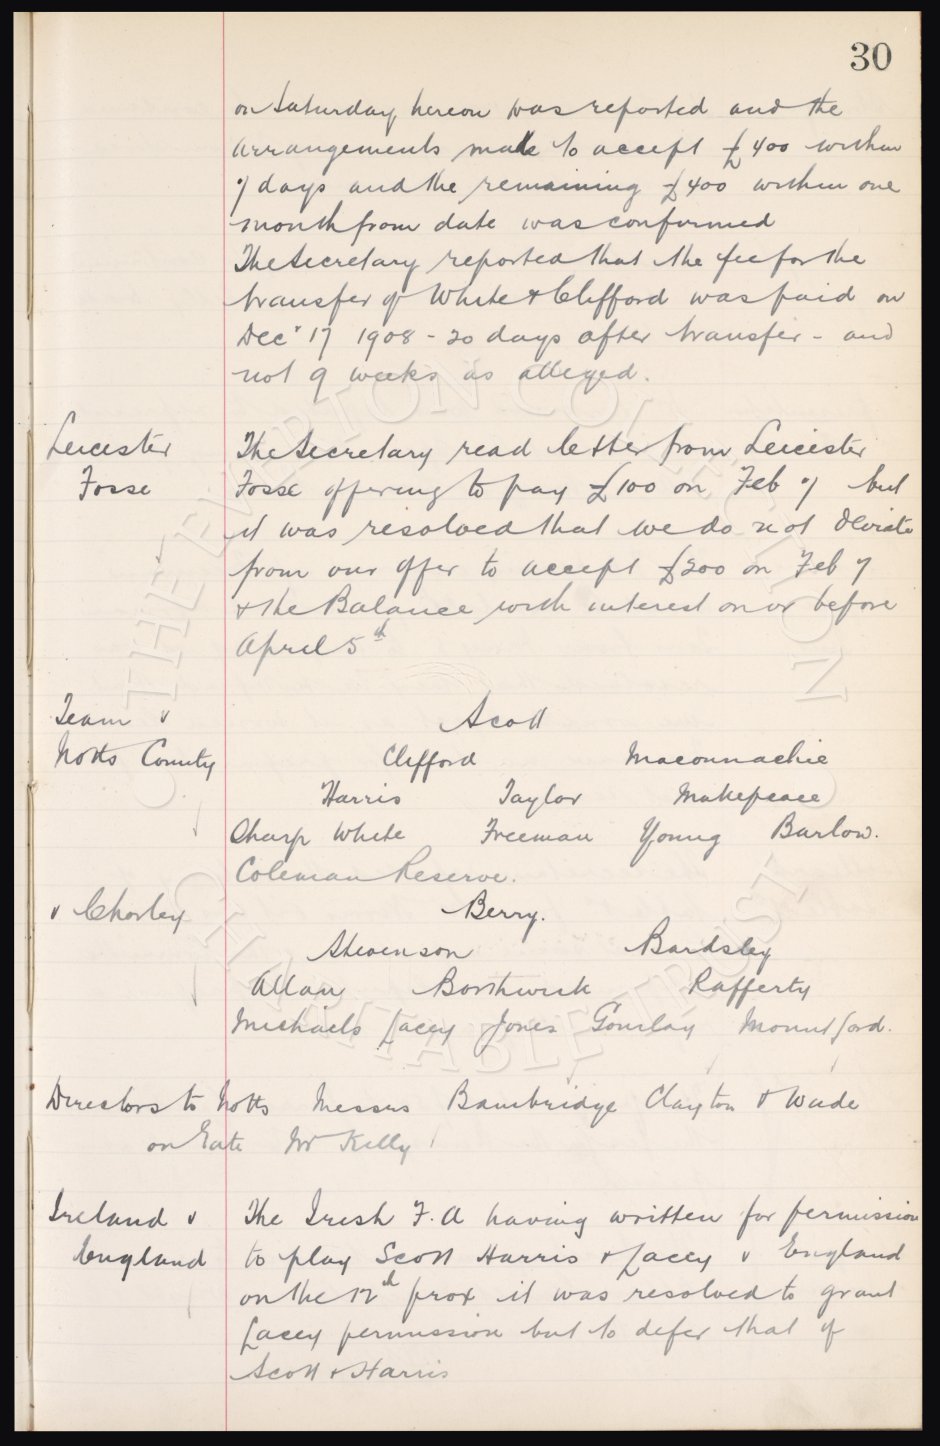 30
on Saturday hereon was reported and the
arrangements made to accept £400 within
7 days and the remaining £400 within one
month from date was confirmed
The Secretary reported that the fee for the
transfer of White & Clifford was paid on
Decr 17 1908 - 20 days after transfer - and
not 9 weeks as alleged.
Leicester The Secretary read letter from Leicester
Fosse Fosse offering to pay £100 on Feb 7 but
it was resolved that we do not deviate
from our offer to accept £200 on Feb 7
& the Balance with interest on or before
April 5th
Team v Scott
Notts County Clifford Maconnachie
Harris Taylor Makepeace
Sharp White Freeman Young Barlow.
Coleman Reserve.
v Chorley Berry.
Stevenson Bardsley
Allan Borthwick Rafferty
Michaels Lacey Jones Gourlay Mountford.
Directors to Notts Messrs Bainbridge Clayton & Wade
on Gate Mr Kelly
Ireland v The Irish F.A having written for permission
England to play Scott Harris & Lacey v England
on the 12th prox it was resolved to grant
Lacey permission but to defer that of
Scott & Harris
THE EVERTON COLLECTION
CHARITABLE TRUST